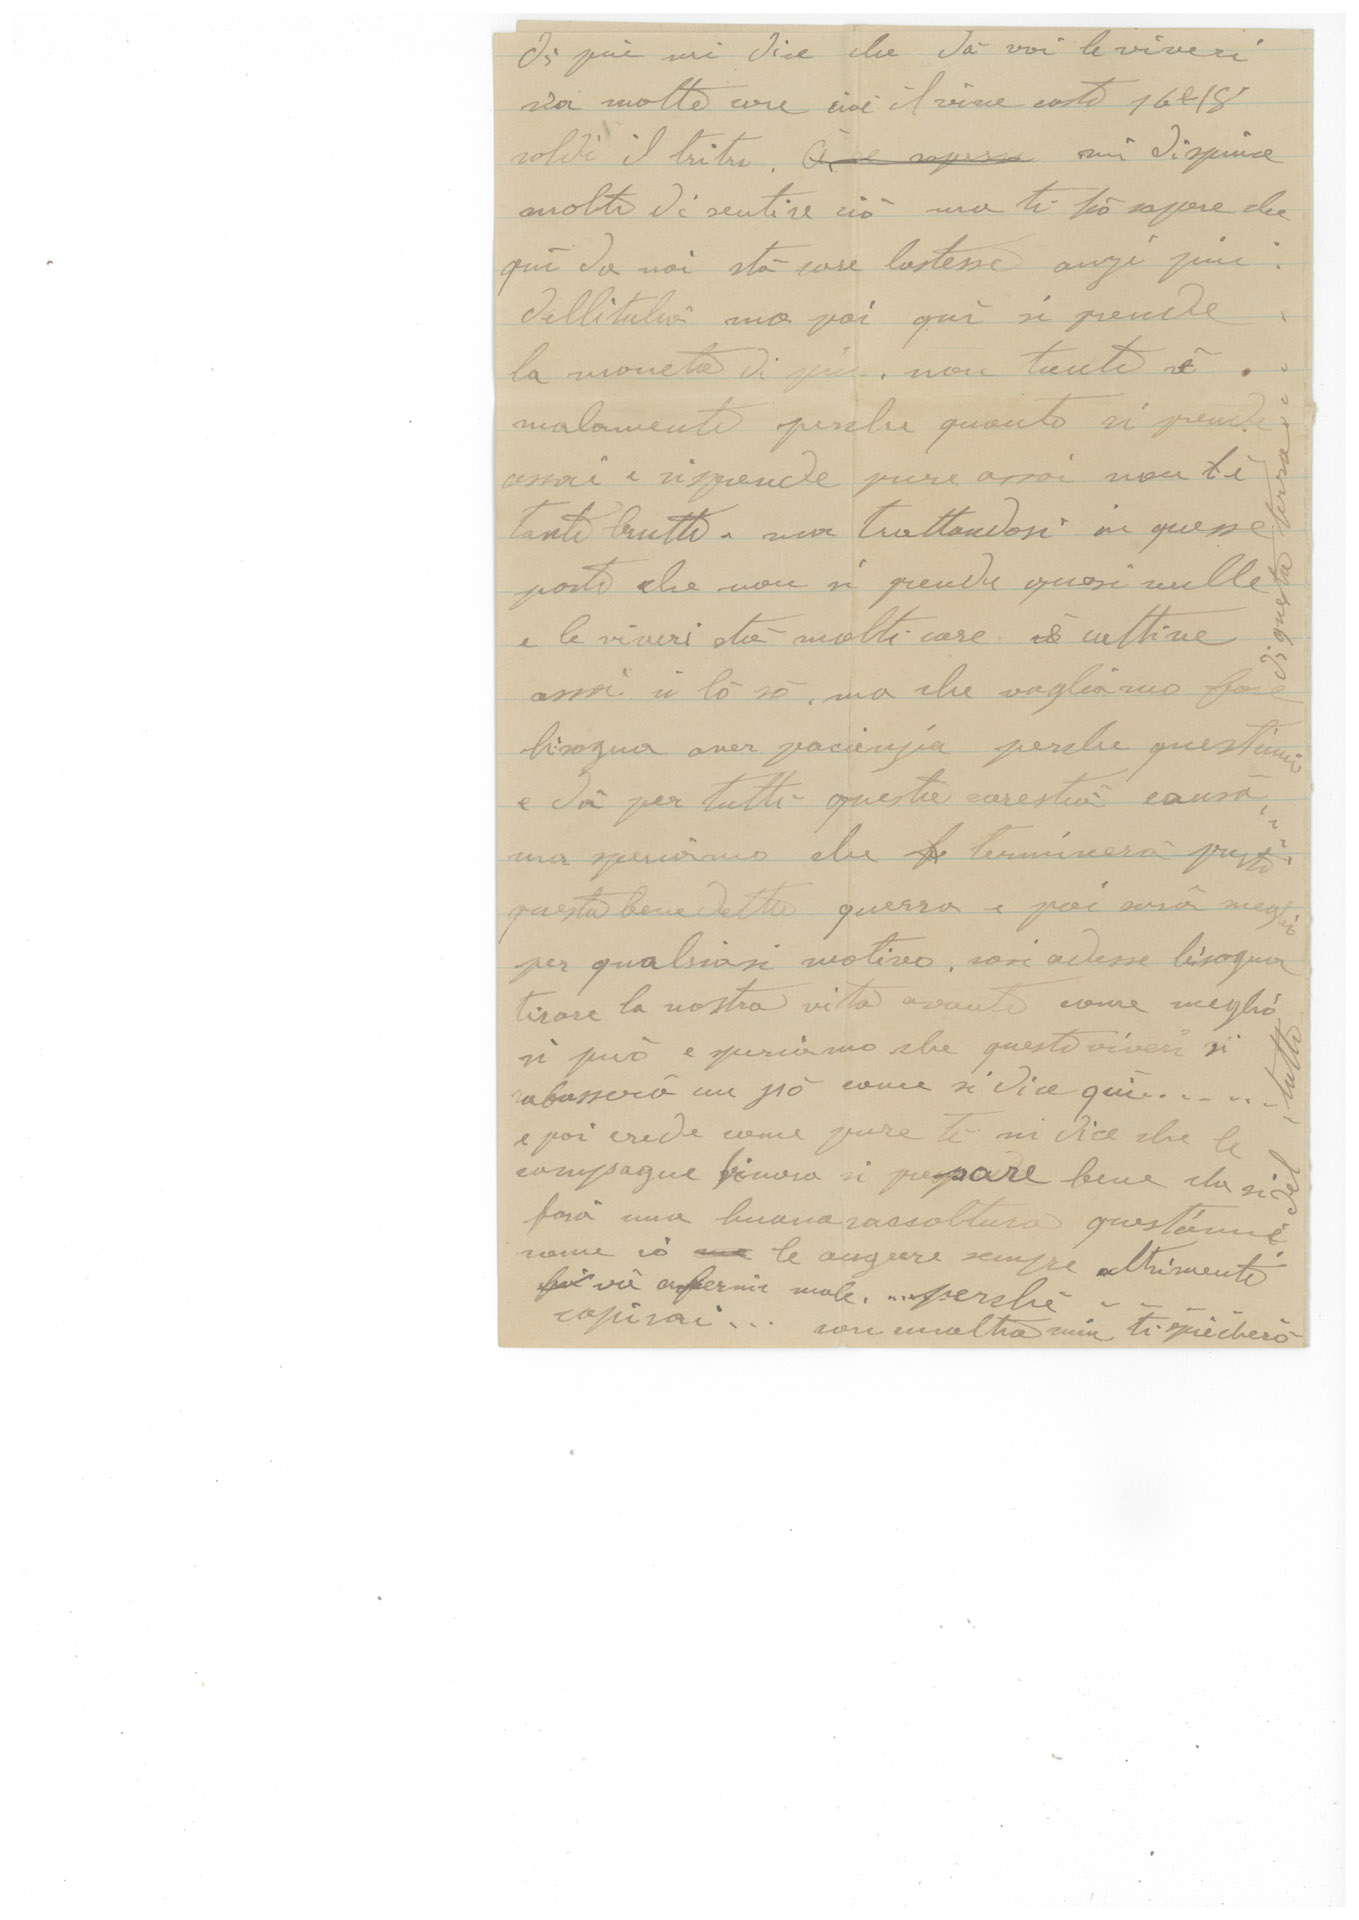 di piú mi dice che dà voi le viveri
sta molto care cioè il vine costo 16 e 18
soldi il litru. mi dispiace
molto di sentire ciò ma ti fò sapere che
quì da noi stà care lostesse anzi piui
dellitalia ma poi quì si prende
la moneta di piú. non tanto è
malamente perche quanto si prende
assai e si spende pure assai non ti
tanto brutto. ma trattandosi in quesse
posto che non si prende quasi nulle
e le viveri stà molti care è cattive
assai si lò sò, ma che vogliamo fare
bisogna aver pacienzia perche questanni
e dà per tutti queste carestia causa
ma speriamo che terminerà presto
questa benedette guerra e poi sarà meglio
per qualsiasi motivo, così adesse bisogna
tirare la nostra vita avanti come meglió
si può e speriamo che questo viveri si
rabasserà un pò come si dice quì.......
e poi crede come pure tè mi dice che le
compagne finora si prepare bene che si
farà una buona raccoltura questánne
come iò te augure sempre altrimente
vià male. ...perchè
capirai... con unaltra mia ti spiecherò
del tutto
di questa terra